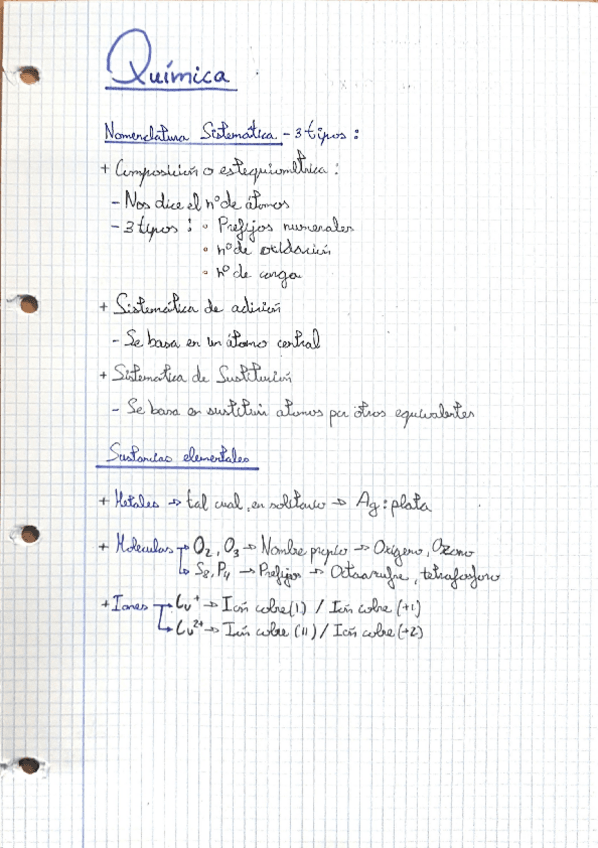 Química
Nomenclatura Sistemática - 3 tipos :
+ Composición o estequiométrica :
- Nos dice el nº de átomos
- 3 tipos : • Prefijos numerales
• nº de oxidación
• nº de carga
+ Sistemática de adición
- Se basa en un átomo central
+ Sistematica de Sustitución
- Se basa en sustituir atomos por otros equivalentes
Sustancias elementales
+ Metales → tal cual, en solitario → Ag : plata
+ Moleculas → O₂, O₃ → Nombre propio → Oxígeno, Ozono
↳ S₈, P₄ → Prefijos → Octaazufre, tetrafosforo
+ Iones → Cu⁺ → Ión cobre (I) / Ión cobre (+1)
↳ Cu²⁺ → Ión cobre (II) / Ión cobre (+2)